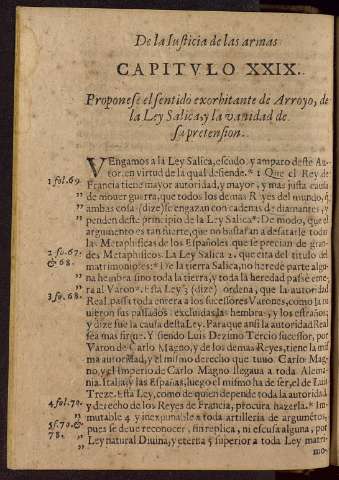 De la Iusticia de las armas
CAPITVLO XXIX.
Proponese el sentido exorbitante de Arroyo, de
la Ley Salica, y la vanidad de
sa pretension.
VEngamos a la Ley Salica, escudo, y amparo deste Au-
tor, en virtud de la qual defiende.* 1 Que el Rey de
1 fol. 69.
Francia tiene mayor autoridad, y mayor, y mas justa causa
de mouer guerra, que todos los demas Reyes del mundo, q̃
ambas cosas (dize) se engazan con cadenas de diamantes, y
penden deste principio de la Ley Salica*: De modo, que el
argumento es tan fuerte, que no bastaran a desatarle todas
las Metaphisicas de los Españoles que se precian de gran-
2 fo. 67.
& 68.
des Metaphisicos. La Ley Salica 2. que cita del titulo del
matrimonio es: * De la tierra Salica, no herede parte algu-
na hembra sino toda la tierra, y toda la heredad passe ente-
ra al Varon*. Esta Ley 3 (dize) ordena, que la autoridad
3 fo. 68.
Real passa toda entera a los sucessores Varones, como la tu
uieron sus passados: excluidas las hembras, y los estraños;
y dize fue la causa desta Ley. Para que ansi la autoridad Real
sea mas firme. Y siendo Luis Dezimo Tercio sucessor, por
Varon de Carlo Magno, y de los demas Reyes, tiene la mis
ma autoridad, y el mismo derecho que tuuo Carlo Mag-
no, y el Imperio de Carlo Magno llegaua a toda Alema-
nia, Italia, y las Españas, luego el mismo ha de ser, el de Luis
Treze. Esta Ley, como de quien depende toda la autoridad
4 fol. 70.
y derecho de los Reyes de Francia, procura hazerla.* Im-
mutable 4 y inexpunable a toda artilleria de argumẽtos,
5 f. 70. &
78.
pues se deue reconocer, sin replica, ni escusa alguna, por
Ley natural Diuina, y eterna 5 superior a toda Ley matri-
mo-